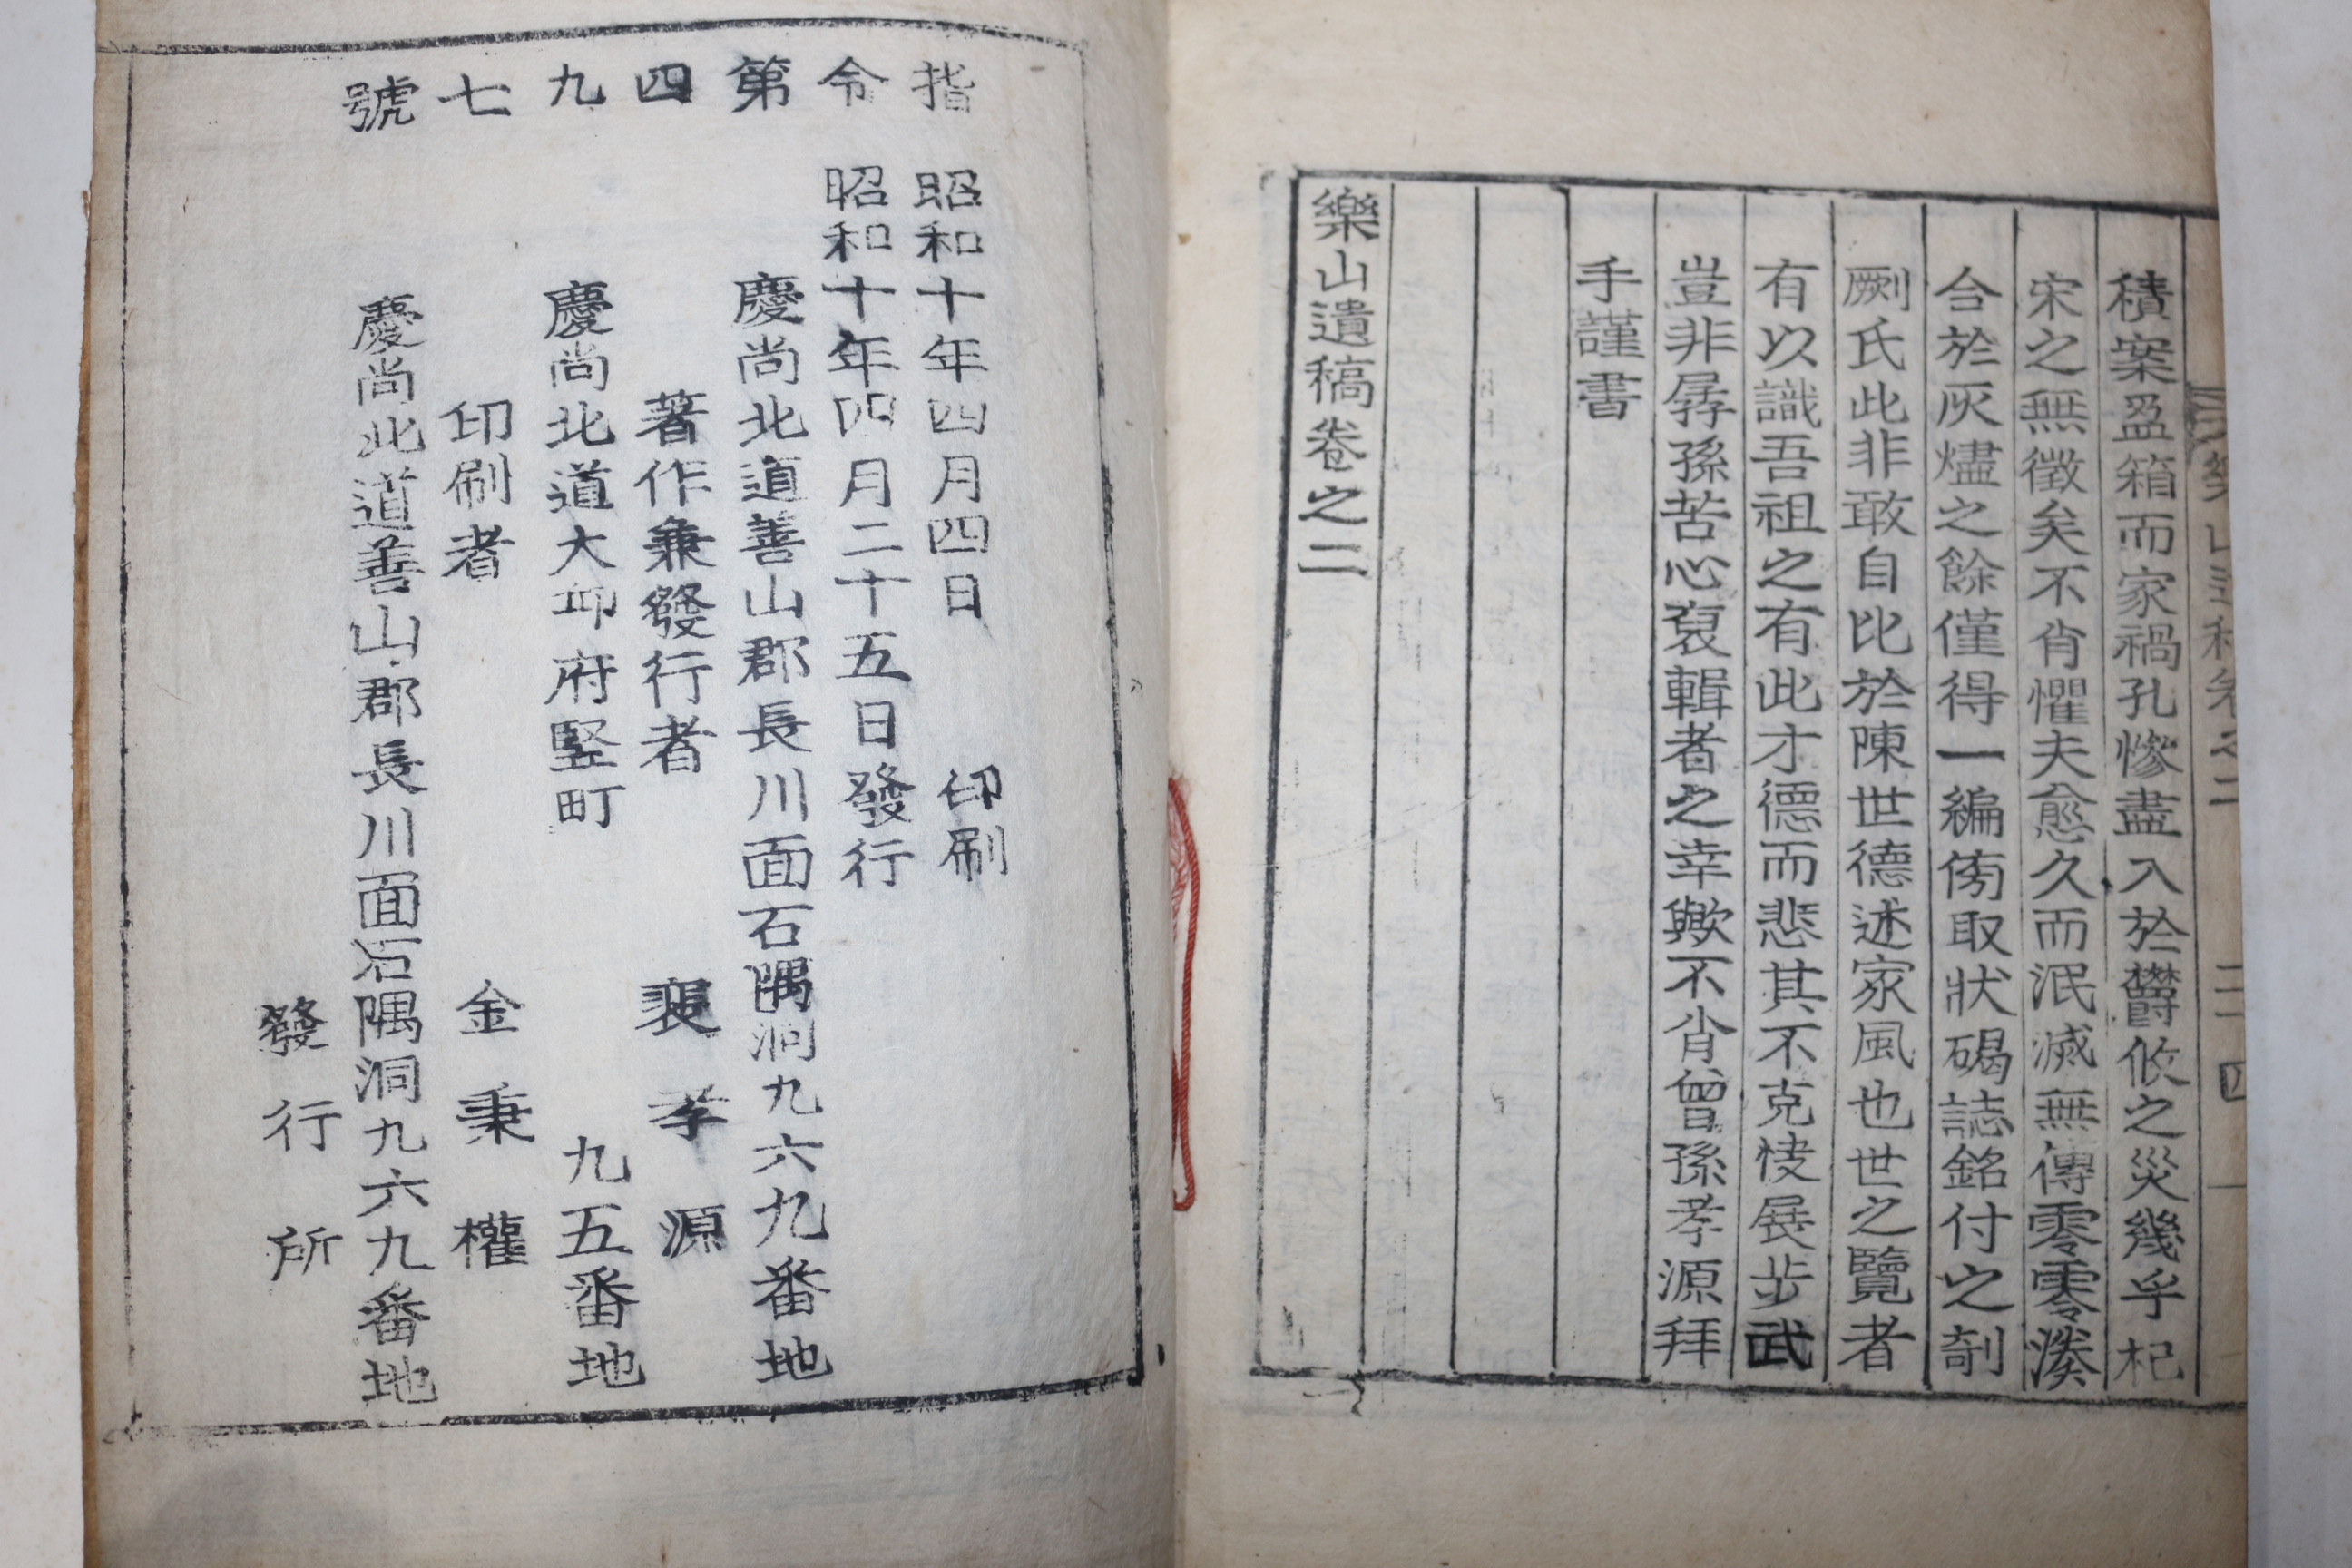 積案盈箱而家禍孔慘盡入於欝攸之災幾乎杞
宋之無徵矣不肖懼夫愈久而泯滅無傳零零湊
合於灰燼之餘僅得一編傍取狀碣誌銘付之剞
劂氏此非敢自比於陳世德述家風也世之覽者
有以識吾祖之有此才德而悲其不克悽展步武
豈非孱孫苦心裒輯者之幸歟不肖曾孫孝源拜
手謹書
樂山遺稿卷之二
指令第四九七號
昭和十年四月四日 印刷
昭和十年四月二十五日發行
慶尚北道善山郡長川面石隅洞九六九番地
著作兼發行者 裵孝源
慶尚北道大邱府竪町 九五番地
印刷者 金秉權
慶尚北道善山郡長川面石隅洞九六九番地
發行所